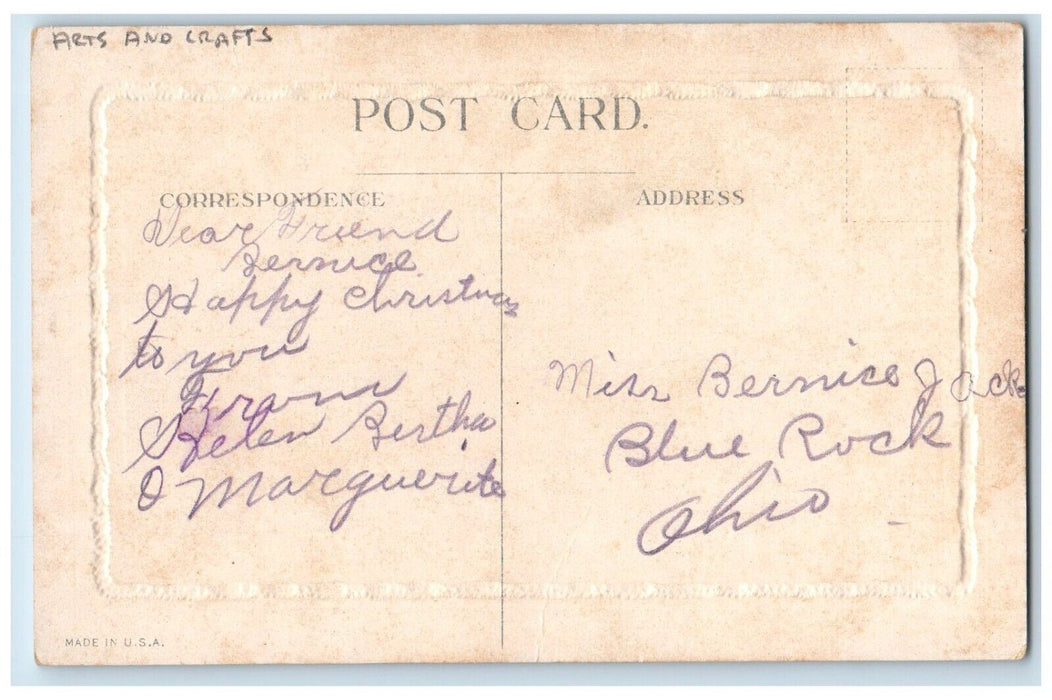 ARTS AND CRAFTS
POST CARD.
CORRESPONDENCE
Dear Friend
Bernice
Happy Christmas
to you
From
Helen Bertha
& Marguerite
ADDRESS
Miss Bernice Jack
Blue Rock
Ohio
MADE IN U.S.A.